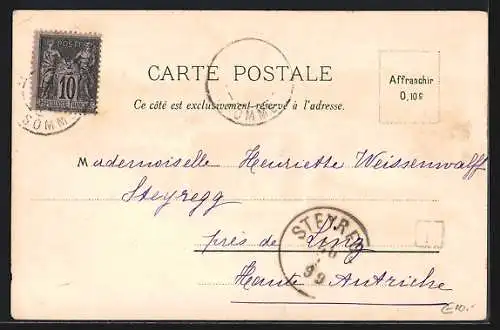 POSTE
10
RÉPUBLIQUE FRANÇAISE
SOMME
SOMME
CARTE POSTALE
Ce côté est exclusivement réservé à l'adresse.
Affranchir
0,10 c
Mademoiselle Henriette Weissenwolff
Steyregg
près de Linz
Haute Autriche
STEYRE
99
€10.-